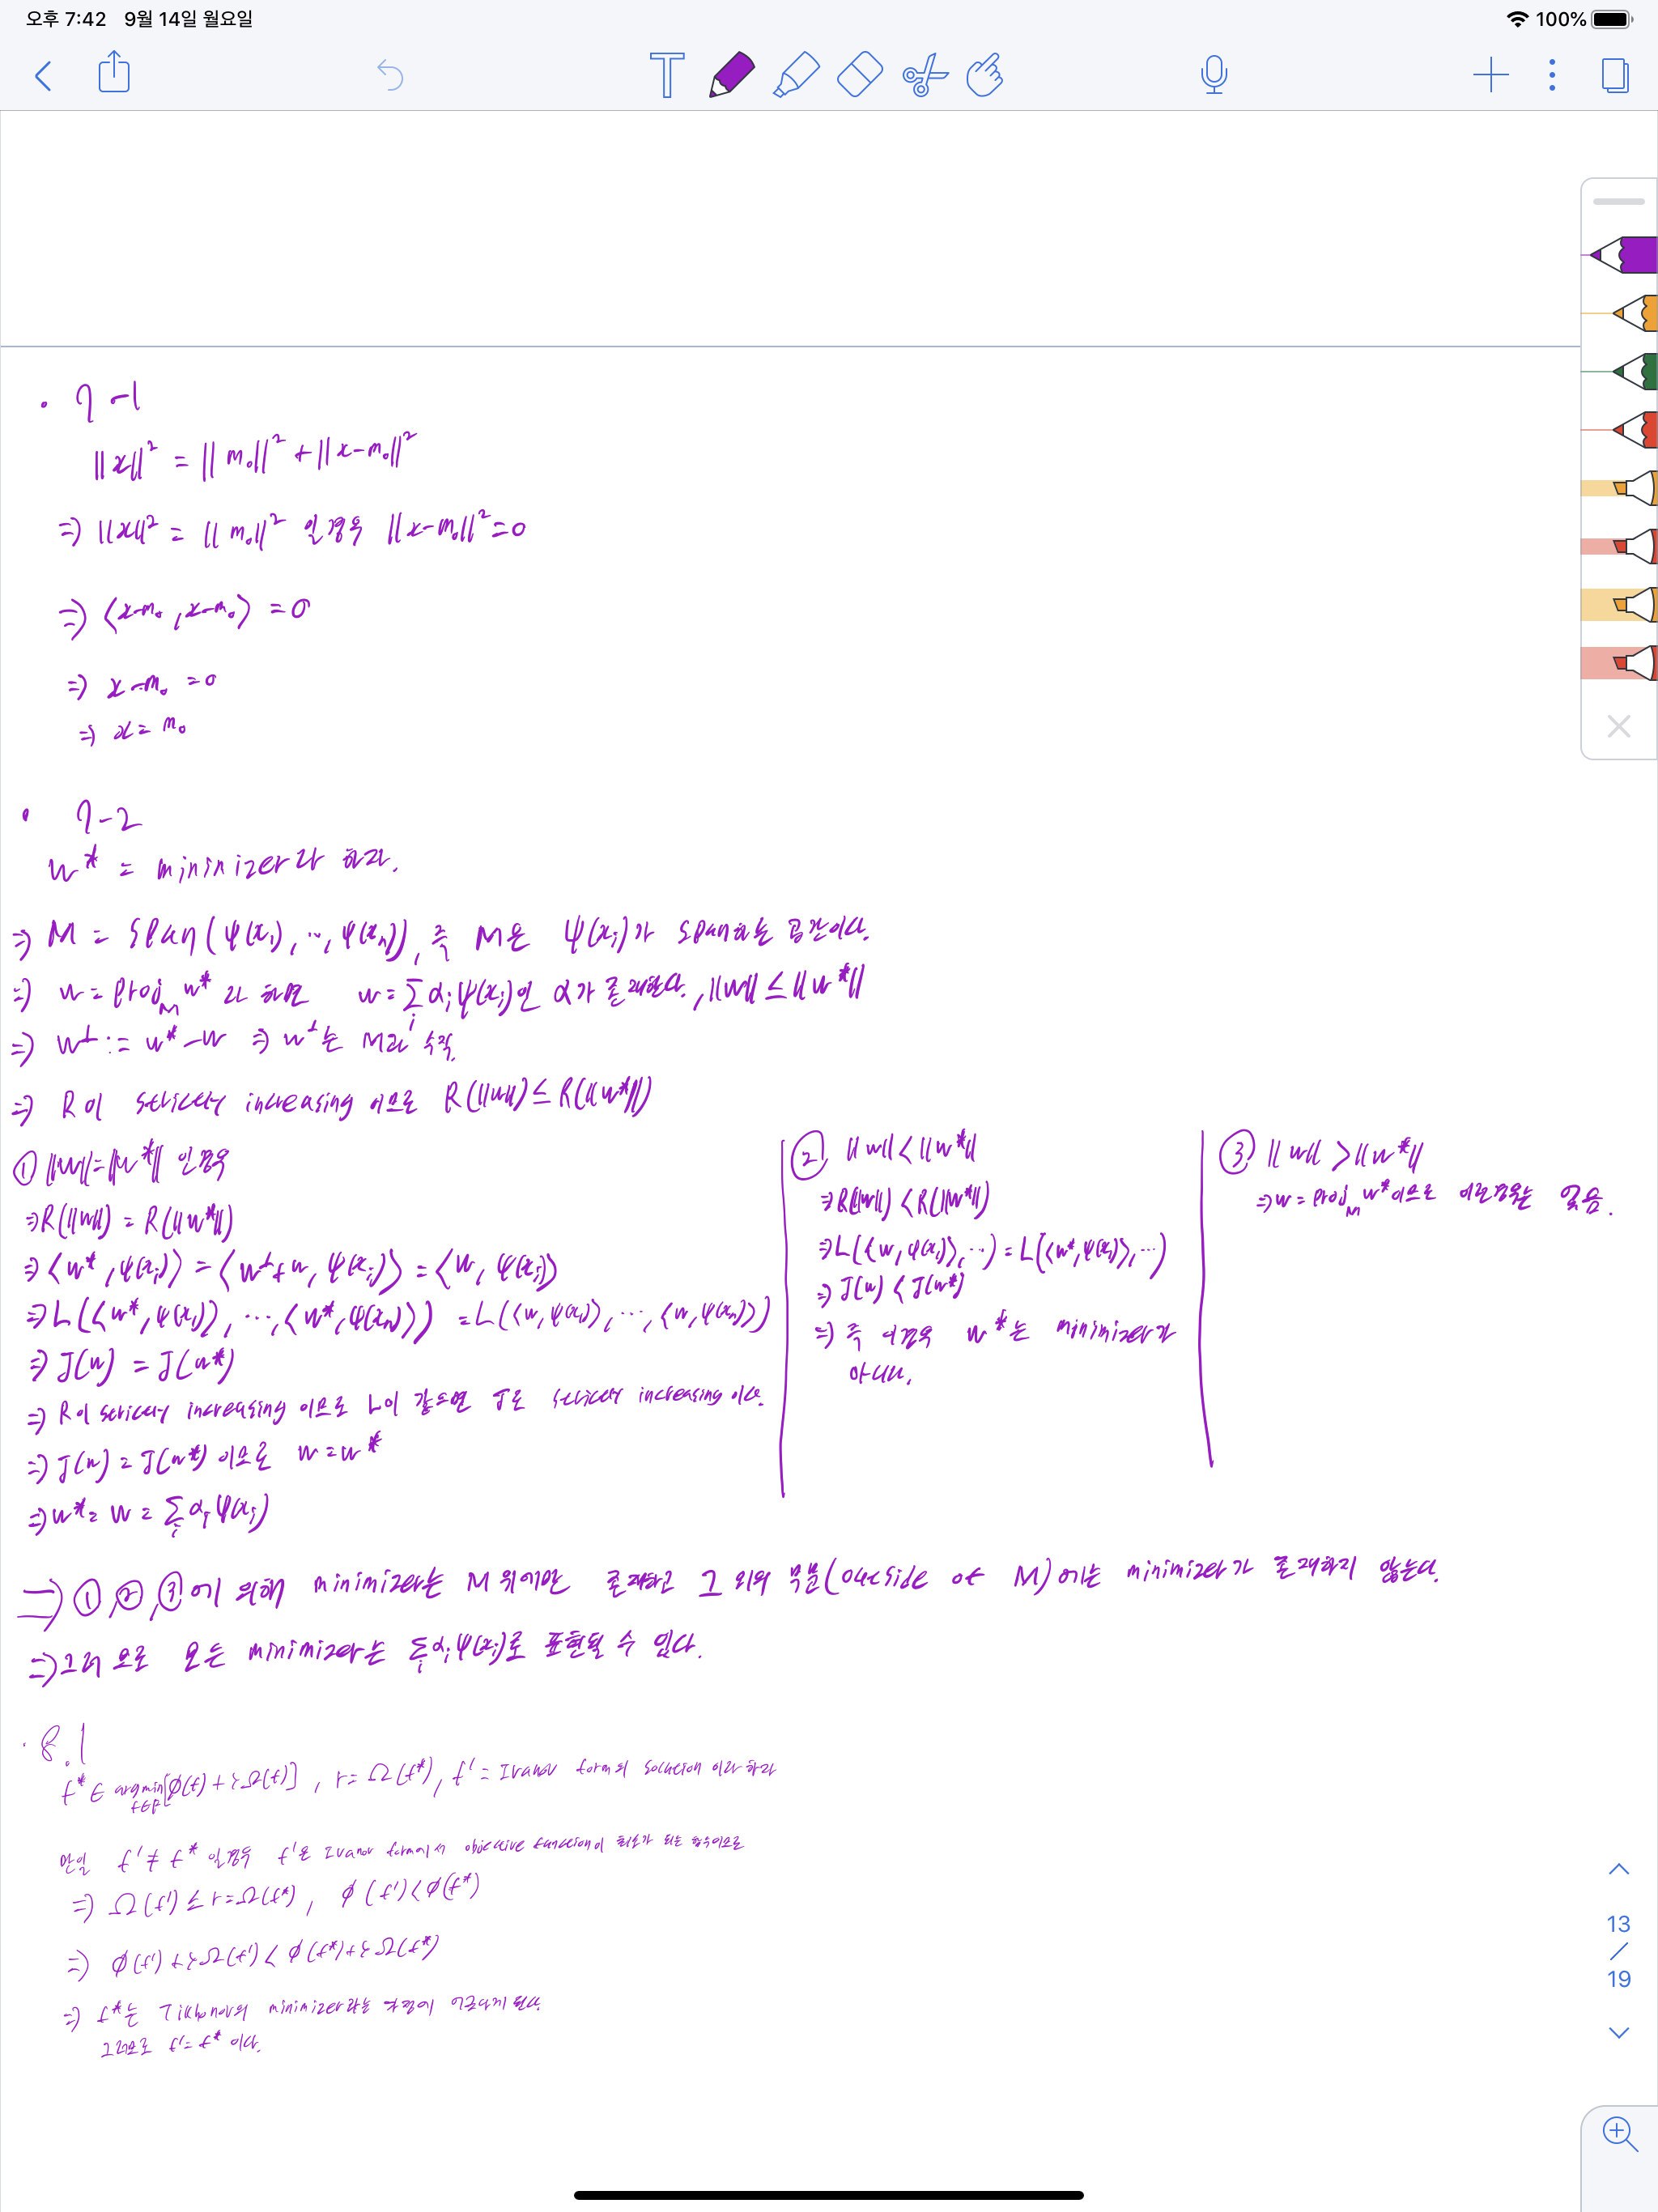 오후 7:42 9월 14일 월요일
100%
· 7-1
||x||² = ||m₀||² + ||x-m₀||²
⇒ ||x||² = ||m₀||² 일경우 ||x-m₀||² = 0
⇒ ⟨x-m₀, x-m₀⟩ = 0
⇒ x-m₀ = 0
⇒ x = m₀
· 7-2
w* = minimizer라 하자.
⇒ M = span(ψ(x₁), …, ψ(xₙ)), 즉 M은 ψ(xᵢ)가 span하는 공간이다.
⇒ w = proj_M w* 라 하면 w = Σᵢ αᵢψ(xᵢ)인 α가 존재한다., ||w|| ≤ ||w*||
⇒ w^⊥ := w* - w ⇒ w^⊥는 M과 수직.
⇒ R이 strictly increasing 이므로 R(||w||) ≤ R(||w*||)
① ||w|| = ||w*|| 인경우
⇒ R(||w||) = R(||w*||)
⇒ ⟨w*, ψ(xᵢ)⟩ = ⟨w^⊥ + w, ψ(xᵢ)⟩ = ⟨w, ψ(xᵢ)⟩
⇒ L(⟨w*, ψ(x₁)⟩, …, ⟨w*, ψ(xₙ)⟩) = L(⟨w, ψ(x₁)⟩, …, ⟨w, ψ(xₙ)⟩)
⇒ J(w) = J(w*)
⇒ R이 strictly increasing 이므로 L이 같으면 J도 strictly increasing 이다.
⇒ J(w) = J(w*) 이므로 w = w*
⇒ w* = w = Σᵢ αᵢψ(xᵢ)
② ||w|| < ||w*||
⇒ R(||w||) < R(||w*||)
⇒ L(⟨w, ψ(x₁)⟩, …) = L(⟨w*, ψ(x₁)⟩, …)
⇒ J(w) < J(w*)
⇒ 즉 이경우 w*는 minimizer가
아니다.
③ ||w|| > ||w*||
⇒ w = proj_M w* 이므로 이런경우는 없음.
⇒ ①, ②, ③에 의해 minimizer는 M 위에만 존재하고 그 외의 부분(outside of M)에는 minimizer가 존재하지 않는다.
⇒ 그러므로 모든 minimizer는 Σᵢ αᵢψ(xᵢ)로 표현될 수 있다.
· 8.1
f* ∈ argmin_{f∈F}[φ(f) + λΩ(f)], r = Ω(f*), f' = Ivanov form의 solution 이라 하자
만일 f' ≠ f* 일경우 f'은 Ivanov form에서 objective function이 최소가 되는 함수이므로
⇒ Ω(f') ≤ r = Ω(f*), φ(f') < φ(f*)
⇒ φ(f') + λΩ(f') < φ(f*) + λΩ(f*)
⇒ f*는 Tikhonov의 minimizer라는 가정에 어긋나게 된다.
그러므로 f' = f* 이다.
13
/
19